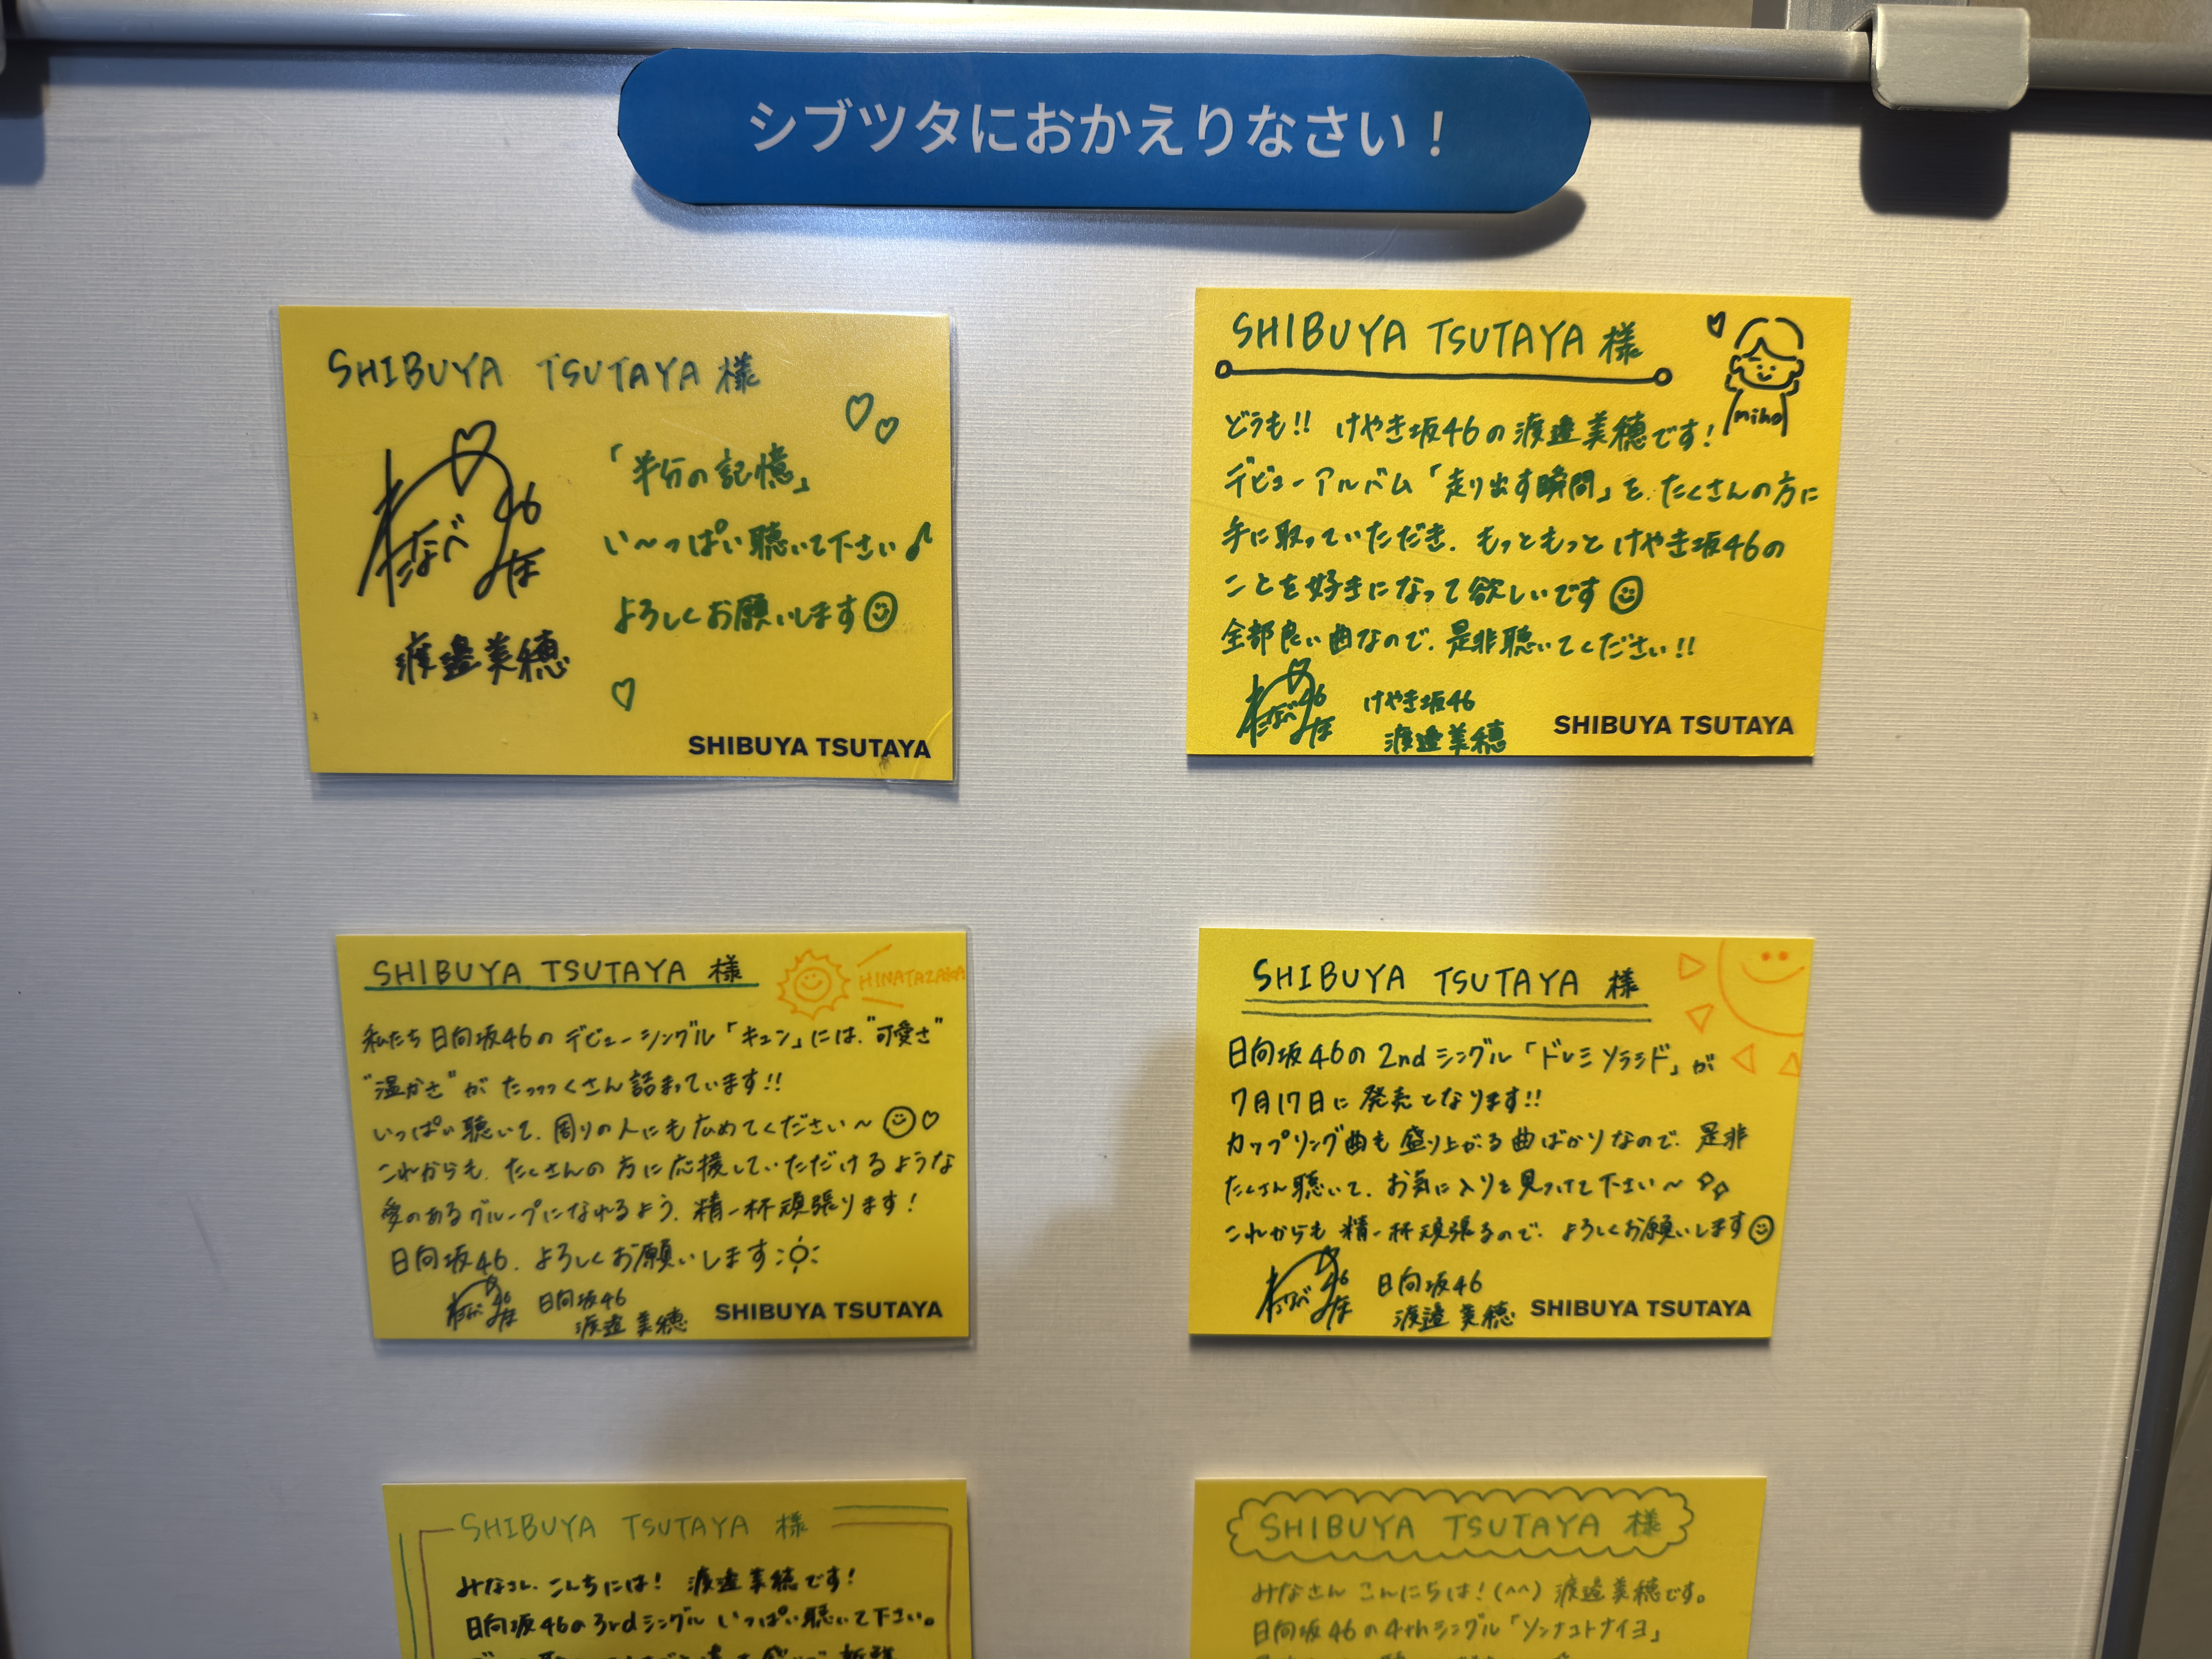 シブツタにおかえりなさい！
SHIBUYA TSUTAYA 様
「半分の記憶」
い〜っぱい聴いて下さい♪
よろしくお願いします
わたなべ 46
みほ
渡邉美穂
SHIBUYA TSUTAYA
SHIBUYA TSUTAYA 様
miho
どうも!! けやき坂46の渡邉美穂です!
デビューアルバム「走り出す瞬間」を、たくさんの方に
手に取っていただき、もっともっとけやき坂46の
ことを好きになって欲しいです
全部良い曲なので、是非聴いてください!!
わたなべ 46
みほ
けやき坂46
渡邉美穂
SHIBUYA TSUTAYA
SHIBUYA TSUTAYA 様
HINATAZAKA
私たち日向坂46のデビューシングル「キュン」には、"可愛さ"
"温かさ"がたっっっくさん詰まっています!!
いっぱい聴いて、周りの人にも広めてください〜
これからも、たくさんの方に応援していただけるような
愛のあるグループになれるよう、精一杯頑張ります!
日向坂46、よろしくお願いします
わたなべ 46
みほ
日向坂46
渡邉美穂
SHIBUYA TSUTAYA
SHIBUYA TSUTAYA 様
日向坂46の2ndシングル「ドレミソラシド」が
7月17日に発売となります!!
カップリング曲も盛り上がる曲ばかりなので、是非
たくさん聴いて、お気に入りを見つけて下さい〜
これからも精一杯頑張るので、よろしくお願いします
わたなべ 46
みほ
日向坂46
渡邉美穂
SHIBUYA TSUTAYA
SHIBUYA TSUTAYA 様
みなさん、こんにちは! 渡邉美穂です!
日向坂46の3rdシングルいっぱい聴いて下さい。
SHIBUYA TSUTAYA 様
みなさんこんにちは! (^^) 渡邉美穂です。
日向坂46の4thシングル「ソンナコトナイヨ」